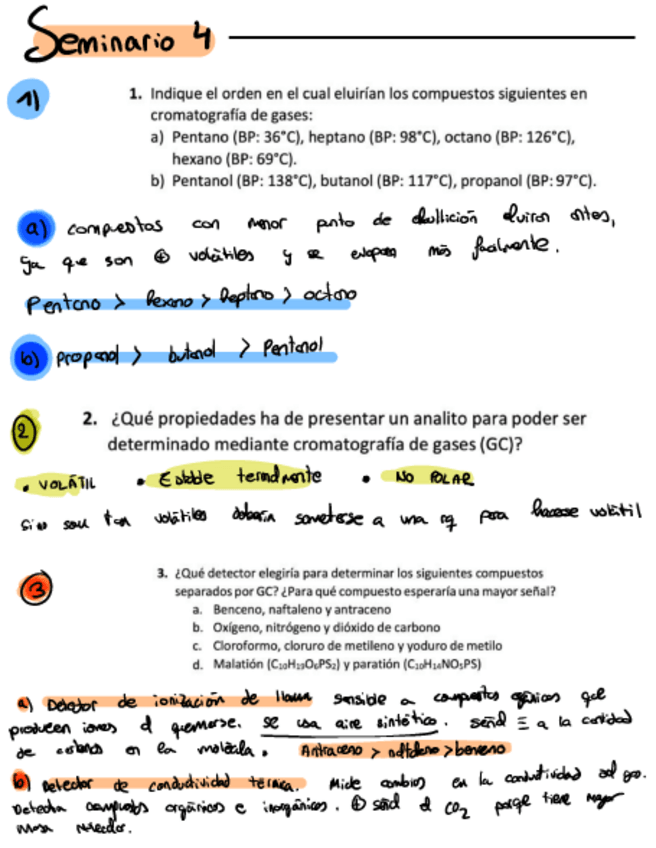 Seminario 4
1)
1. Indique el orden en el cual eluirían los compuestos siguientes en
cromatografía de gases:
a) Pentano (BP: 36°C), heptano (BP: 98°C), octano (BP: 126°C),
hexano (BP: 69°C).
b) Pentanol (BP: 138°C), butanol (BP: 117°C), propanol (BP: 97°C).
a) compuestos con menor punto de ebullición eluiran antes,
ya que son ⊕ volátiles y se evapora más facilmente.
Pentano > hexano > heptano > octano
b) propanol > butanol > Pentanol
2
2. ¿Qué propiedades ha de presentar un analito para poder ser
determinado mediante cromatografía de gases (GC)?
• VOLÁTIL • Estable termalmente • NO POLAR
Si no son tan volátiles deberían someterse a una rq para hacerse volátil
3
3. ¿Qué detector elegiría para determinar los siguientes compuestos
separados por GC? ¿Para qué compuesto esperaría una mayor señal?
a. Benceno, naftaleno y antraceno
b. Oxígeno, nitrógeno y dióxido de carbono
c. Cloroformo, cloruro de metileno y yoduro de metilo
d. Malatión (C₁₀H₁₉O₆PS₂) y paratión (C₁₀H₁₄NO₅PS)
a) Detector de ionización de llama sensible a compuestos orgánicos que
producen iones al quemarse. se usa aire sintético. señal Ξ a la cantidad
de carbonos en la molécula. Antraceno > naftaleno > benceno
b) Detector de conductividad térmica. Mide cambios en la conductividad del gas.
Detecta compuestos orgánicos e inorgánicos. ⊕ señal el CO₂ porque tiene mayor
masa molecular.